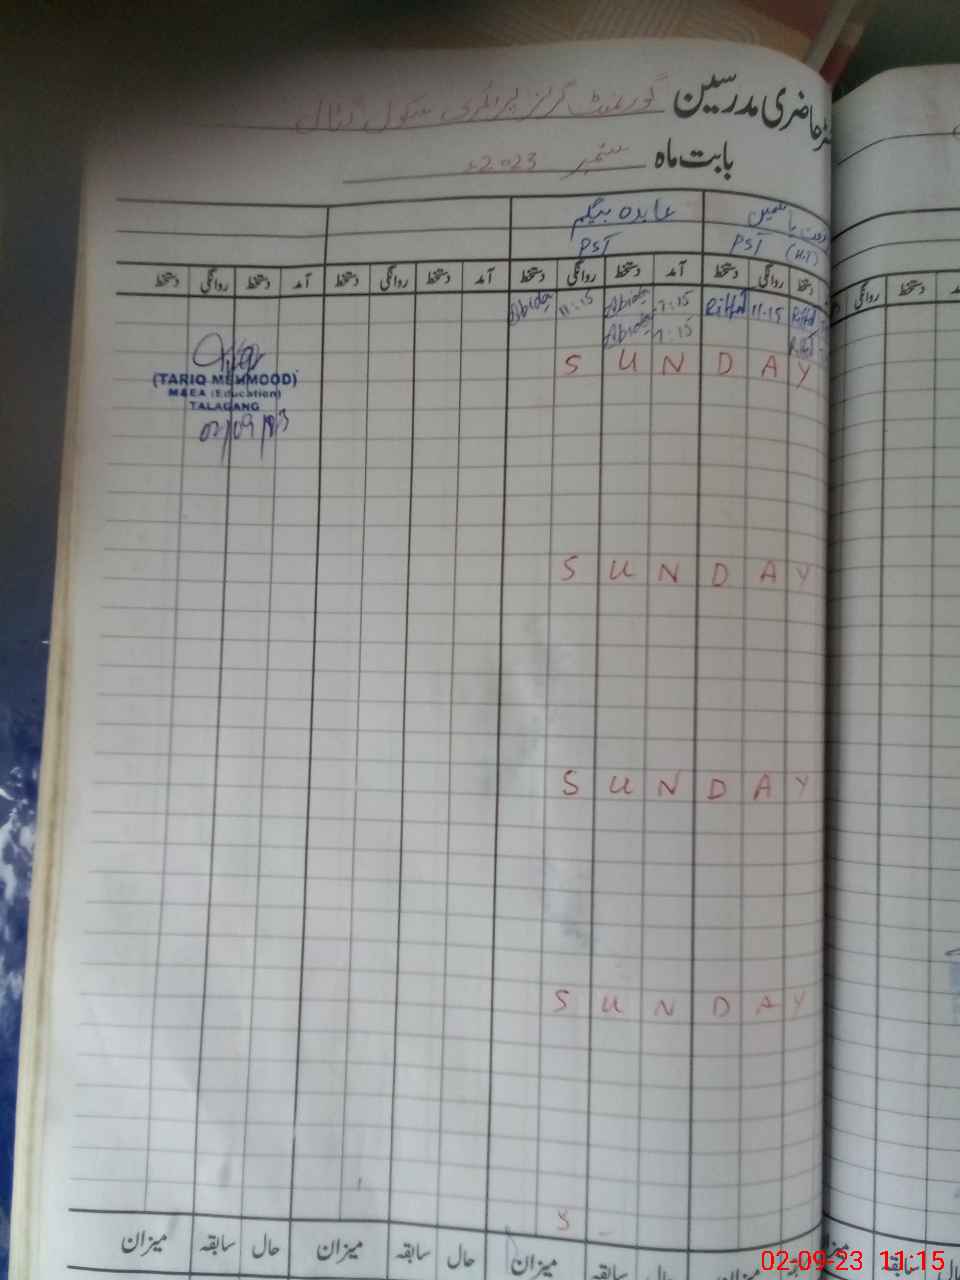 حاضری مدرسین گورنمنٹ گرلز پرائمری سکول
بابت ماہ ستمبر 2023ء
یاسمین عابدہ بیگم
PST (H.T) PST
دستخط روانگی دستخط آمد دستخط روانگی دستخط آمد دستخط روانگی دستخط آمد دستخط روانگی دستخط
Abida 11:15 Abida 7:15 Riffat 11:15 Riffat
Abida 7:15 Riffat
S U N D A Y
(TARIQ MEHMOOD)
M&EA (Education)
TALAGANG
02/09/23
S U N D A Y
S U N D A Y
S U N D A Y
S
میزان حال سابقہ میزان حال سابقہ میزان حال سابقہ میزان
روانگی دستخط
سابقہ حال
02-09-23 11:15